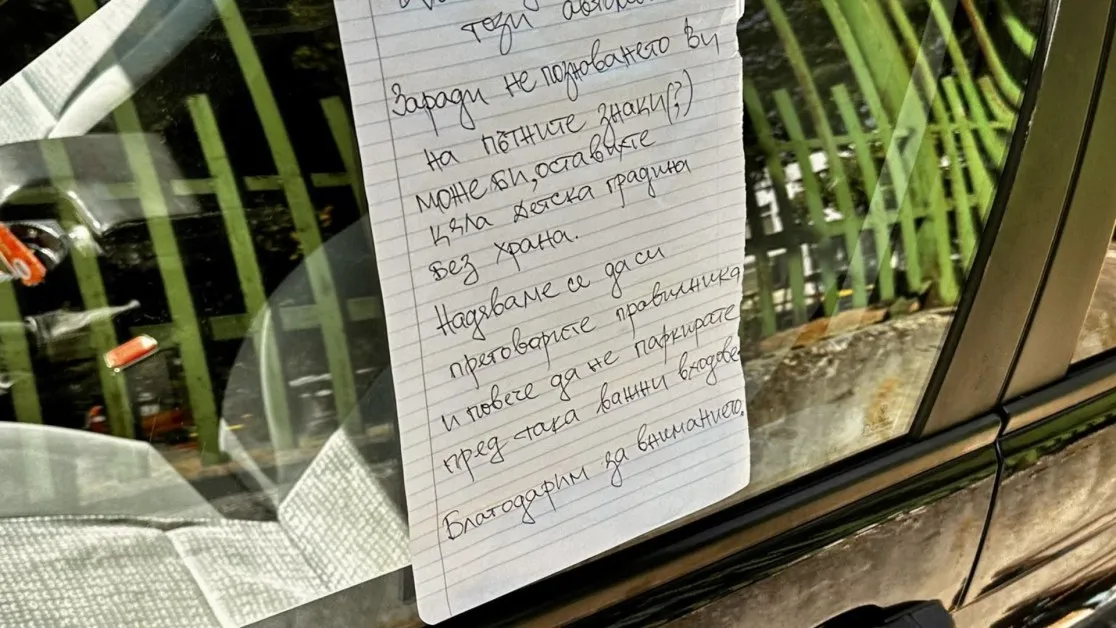 този
Заради не позноването Ви
на пътните знаки(?)
може би, оставихте
цяла детска градина
без храна.
Надяваме се да си
преговорите правилника
и повече да не паркирате
пред така важни входове
Благодарим за вниманието.